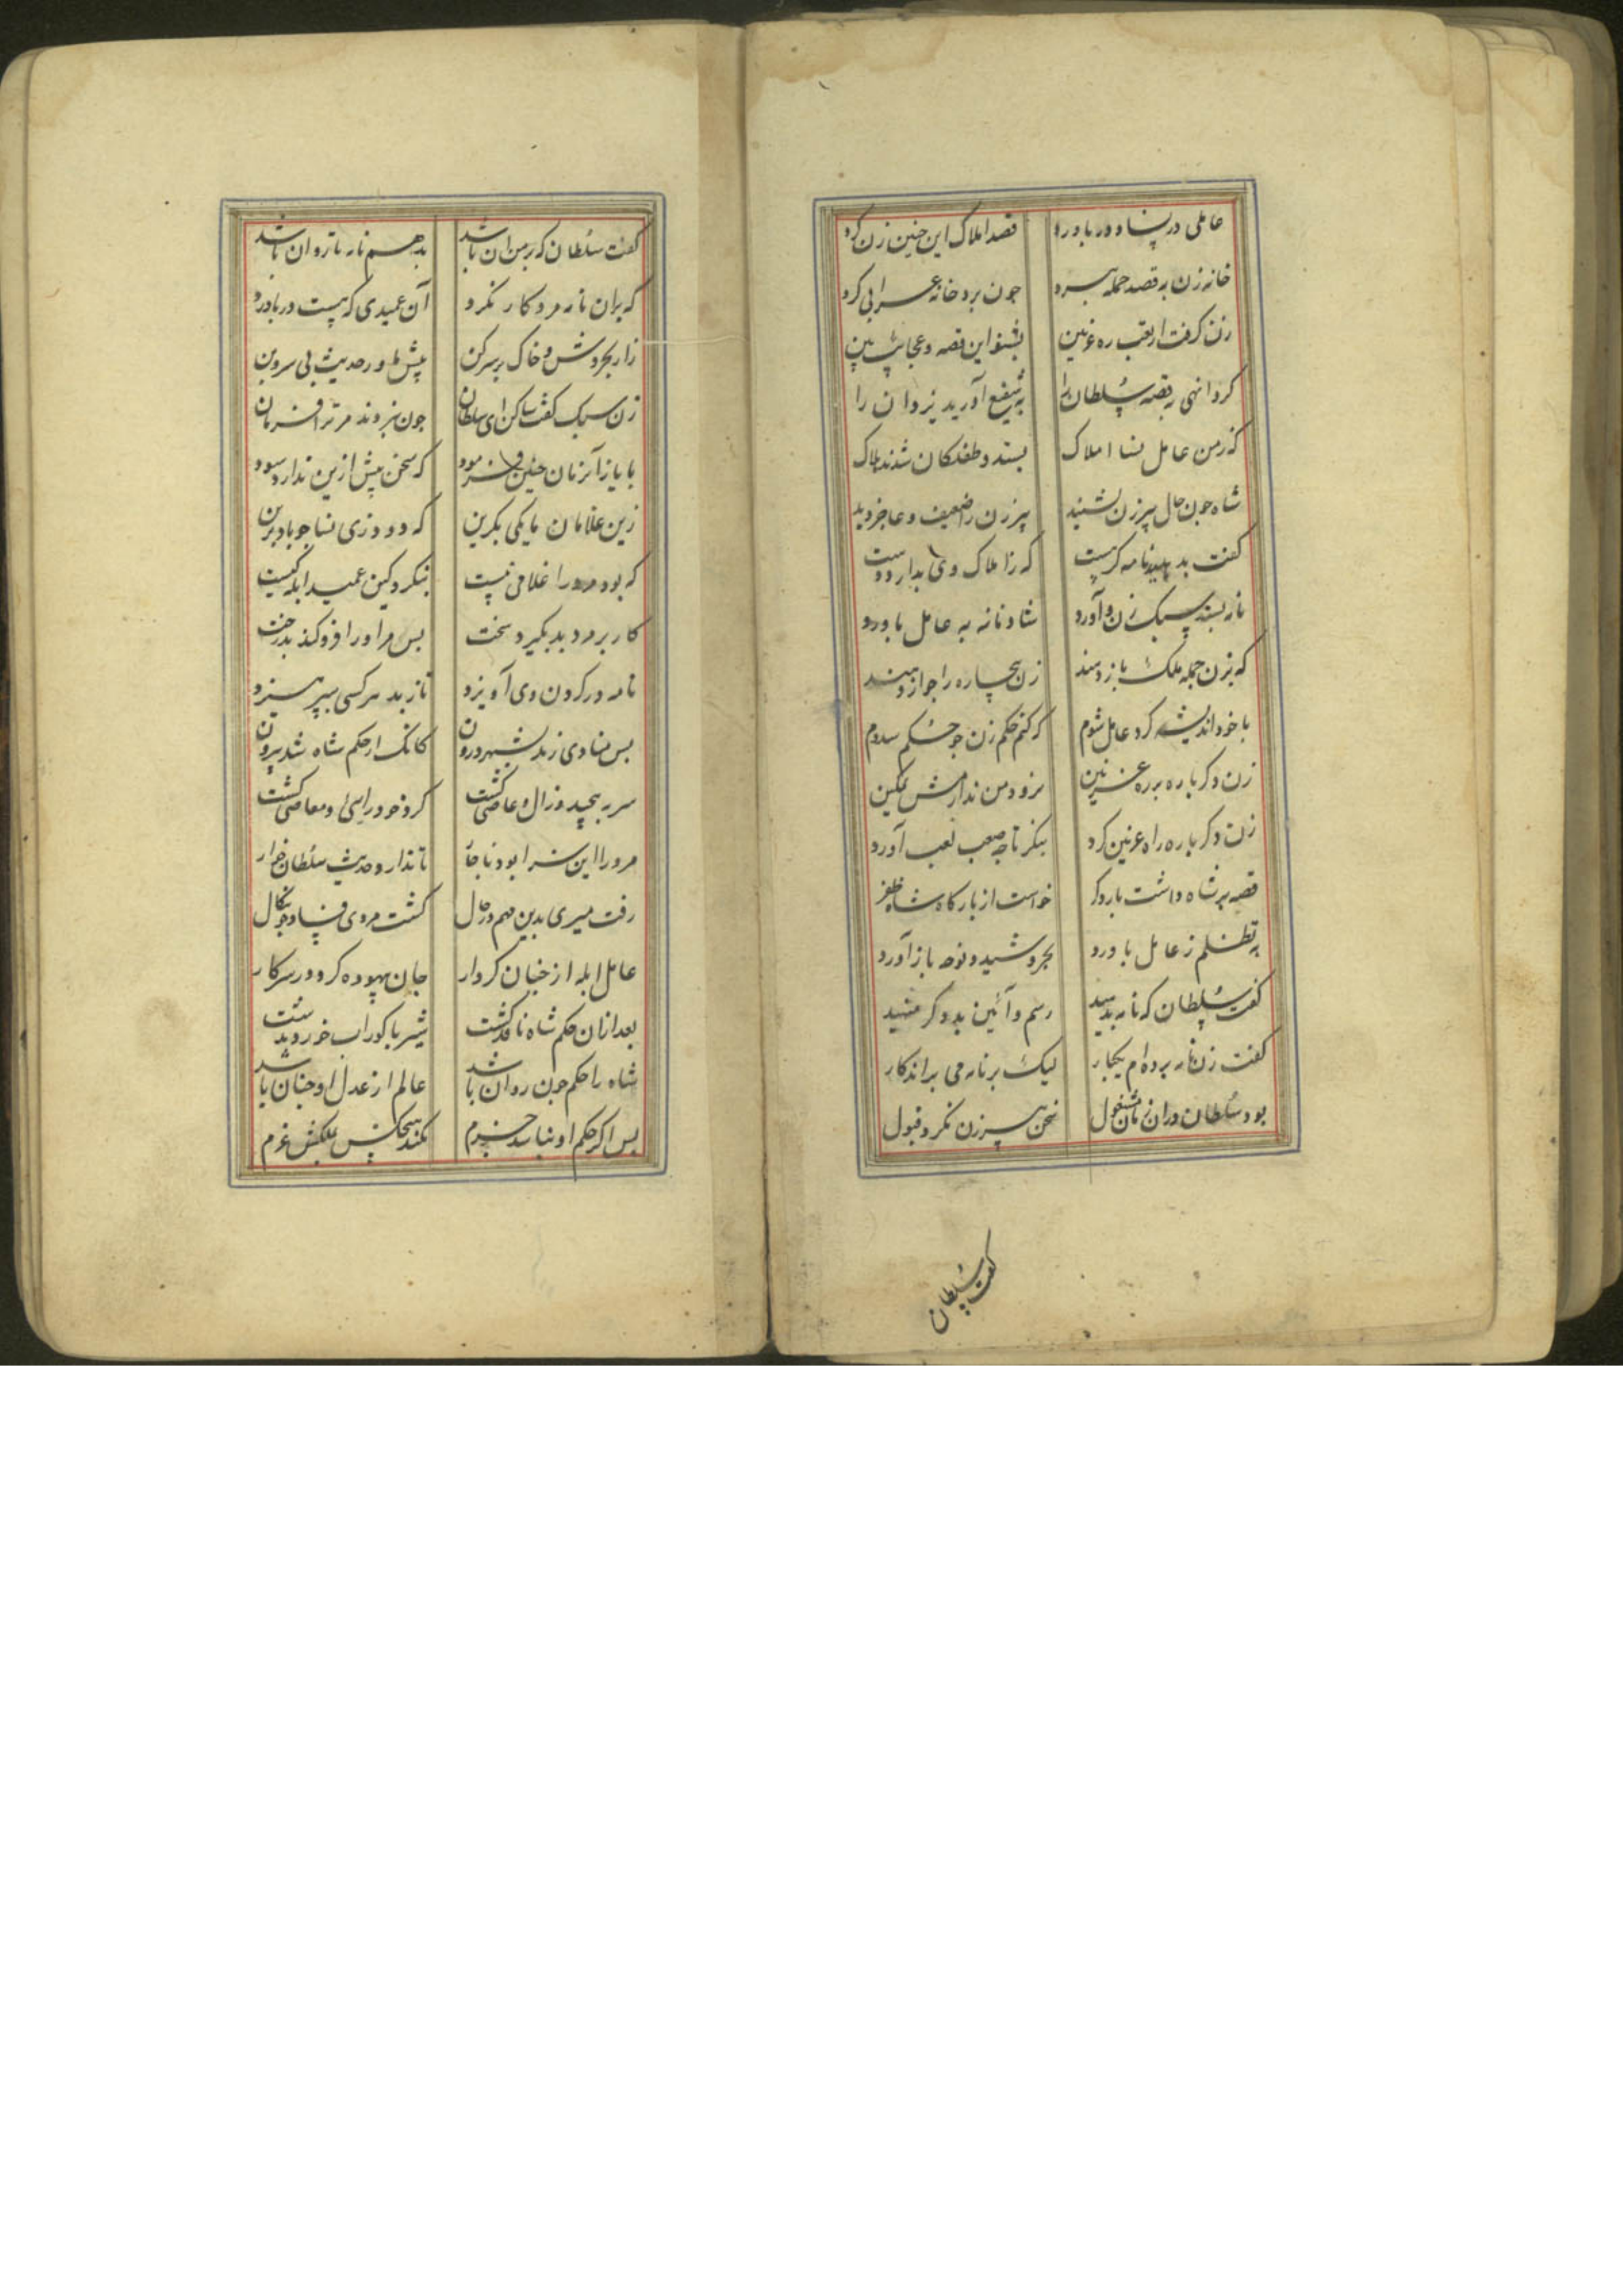 عاملی در نسا و در باورد قصد املاک این چنین زن کرد
خانه زن به قصد جمله ببرد چون برد خانه عرابی کرد
زن گرفت از تعب ره غزنین بشنو این قصه و عجایب بین
کرد انهی به قصه سلطان را به شفیع آورید یزدان را
که ز من عامل نسا املاک بستد و طفلکان شدند هلاک
شاه چون حال پیر زن بشنید پیر زن را ضعیف و عاجز دید
گفت بدهید نامه گر هست که ز املاک وی بدارد دست
نامه بستد سبک زن و آورد شادمانه به عامل باورد
که بزن جمله ملک باز دهند زن بیچاره را جواز دهند
با خود اندیشه کرد عامل شوم که کنم حکم زن چو حکم سدوم
زن دگر باره بر ره غزنین نرود من ندارمش تمکین
زن دگر باره راه غزنین کرد بنگر تا چه صعب لعب آورد
قصه بر شاه داشت بار دگر خواست از بارگاه شاه ظفر
به تظلم ز عامل باورد بخروشید و نوحه باز آورد
گفت سلطان که نامه بدهید رسم و آئین بد دگر منهید
گفت زن نامه برده‌ام یکبار لیک بر نامه می براند کار
بود سلطان در آن زمان مشغول سخن پیرزن نکرد قبول
گفت سلطان
گفت سلطان که بر من آن باشد بدهم نامه تا روان باشد
که بران نامه مرد کار نکرد آن عمیدی که هست در باورد
زار بخروش و خاک بر سر کن پیش ما ور حدیث بی سر و بن
زن سبک گفت ساکن ای سلطان چون نبردند مر ترا فرمان
با یاز آنزمان چنین فرمود که سخن بیش ازین ندارد سود
زین غلامان ما یکی بگزین که دود زی نسا چو باد بزین
که بود مرورا غلامی بیست بنگرد کین عمید ابله کیست
کار بر مرد بد بگیرد سخت بس مر او را فرو کند بدرخت
نامه در گردن وی آویزد تا ز بد هر کسی بپرهیزد
بس منادی زند بشهر درون کانک از حکم شاه شد بیرون
سر بپیچید وز آل و عاصی گشت گرد خود رایی و معاصی گشت
مرورا این سزا بود ناچار تا ندارد حدیث سلطان خوار
رفت میری بدین مهم در حال گشت مروی فساد جو نکال
عامل ابله از چنان کردار جان بیهوده کرد در سر کار
بعد از ان حکم شاه نافذ گشت شیر با گور آب خورد بدشت
شاه را حکم چون روان باشد عالم از عدل او جنان باشد
بس اگر حکم او نباشد جزم نکند هیچکس بملکش عزم